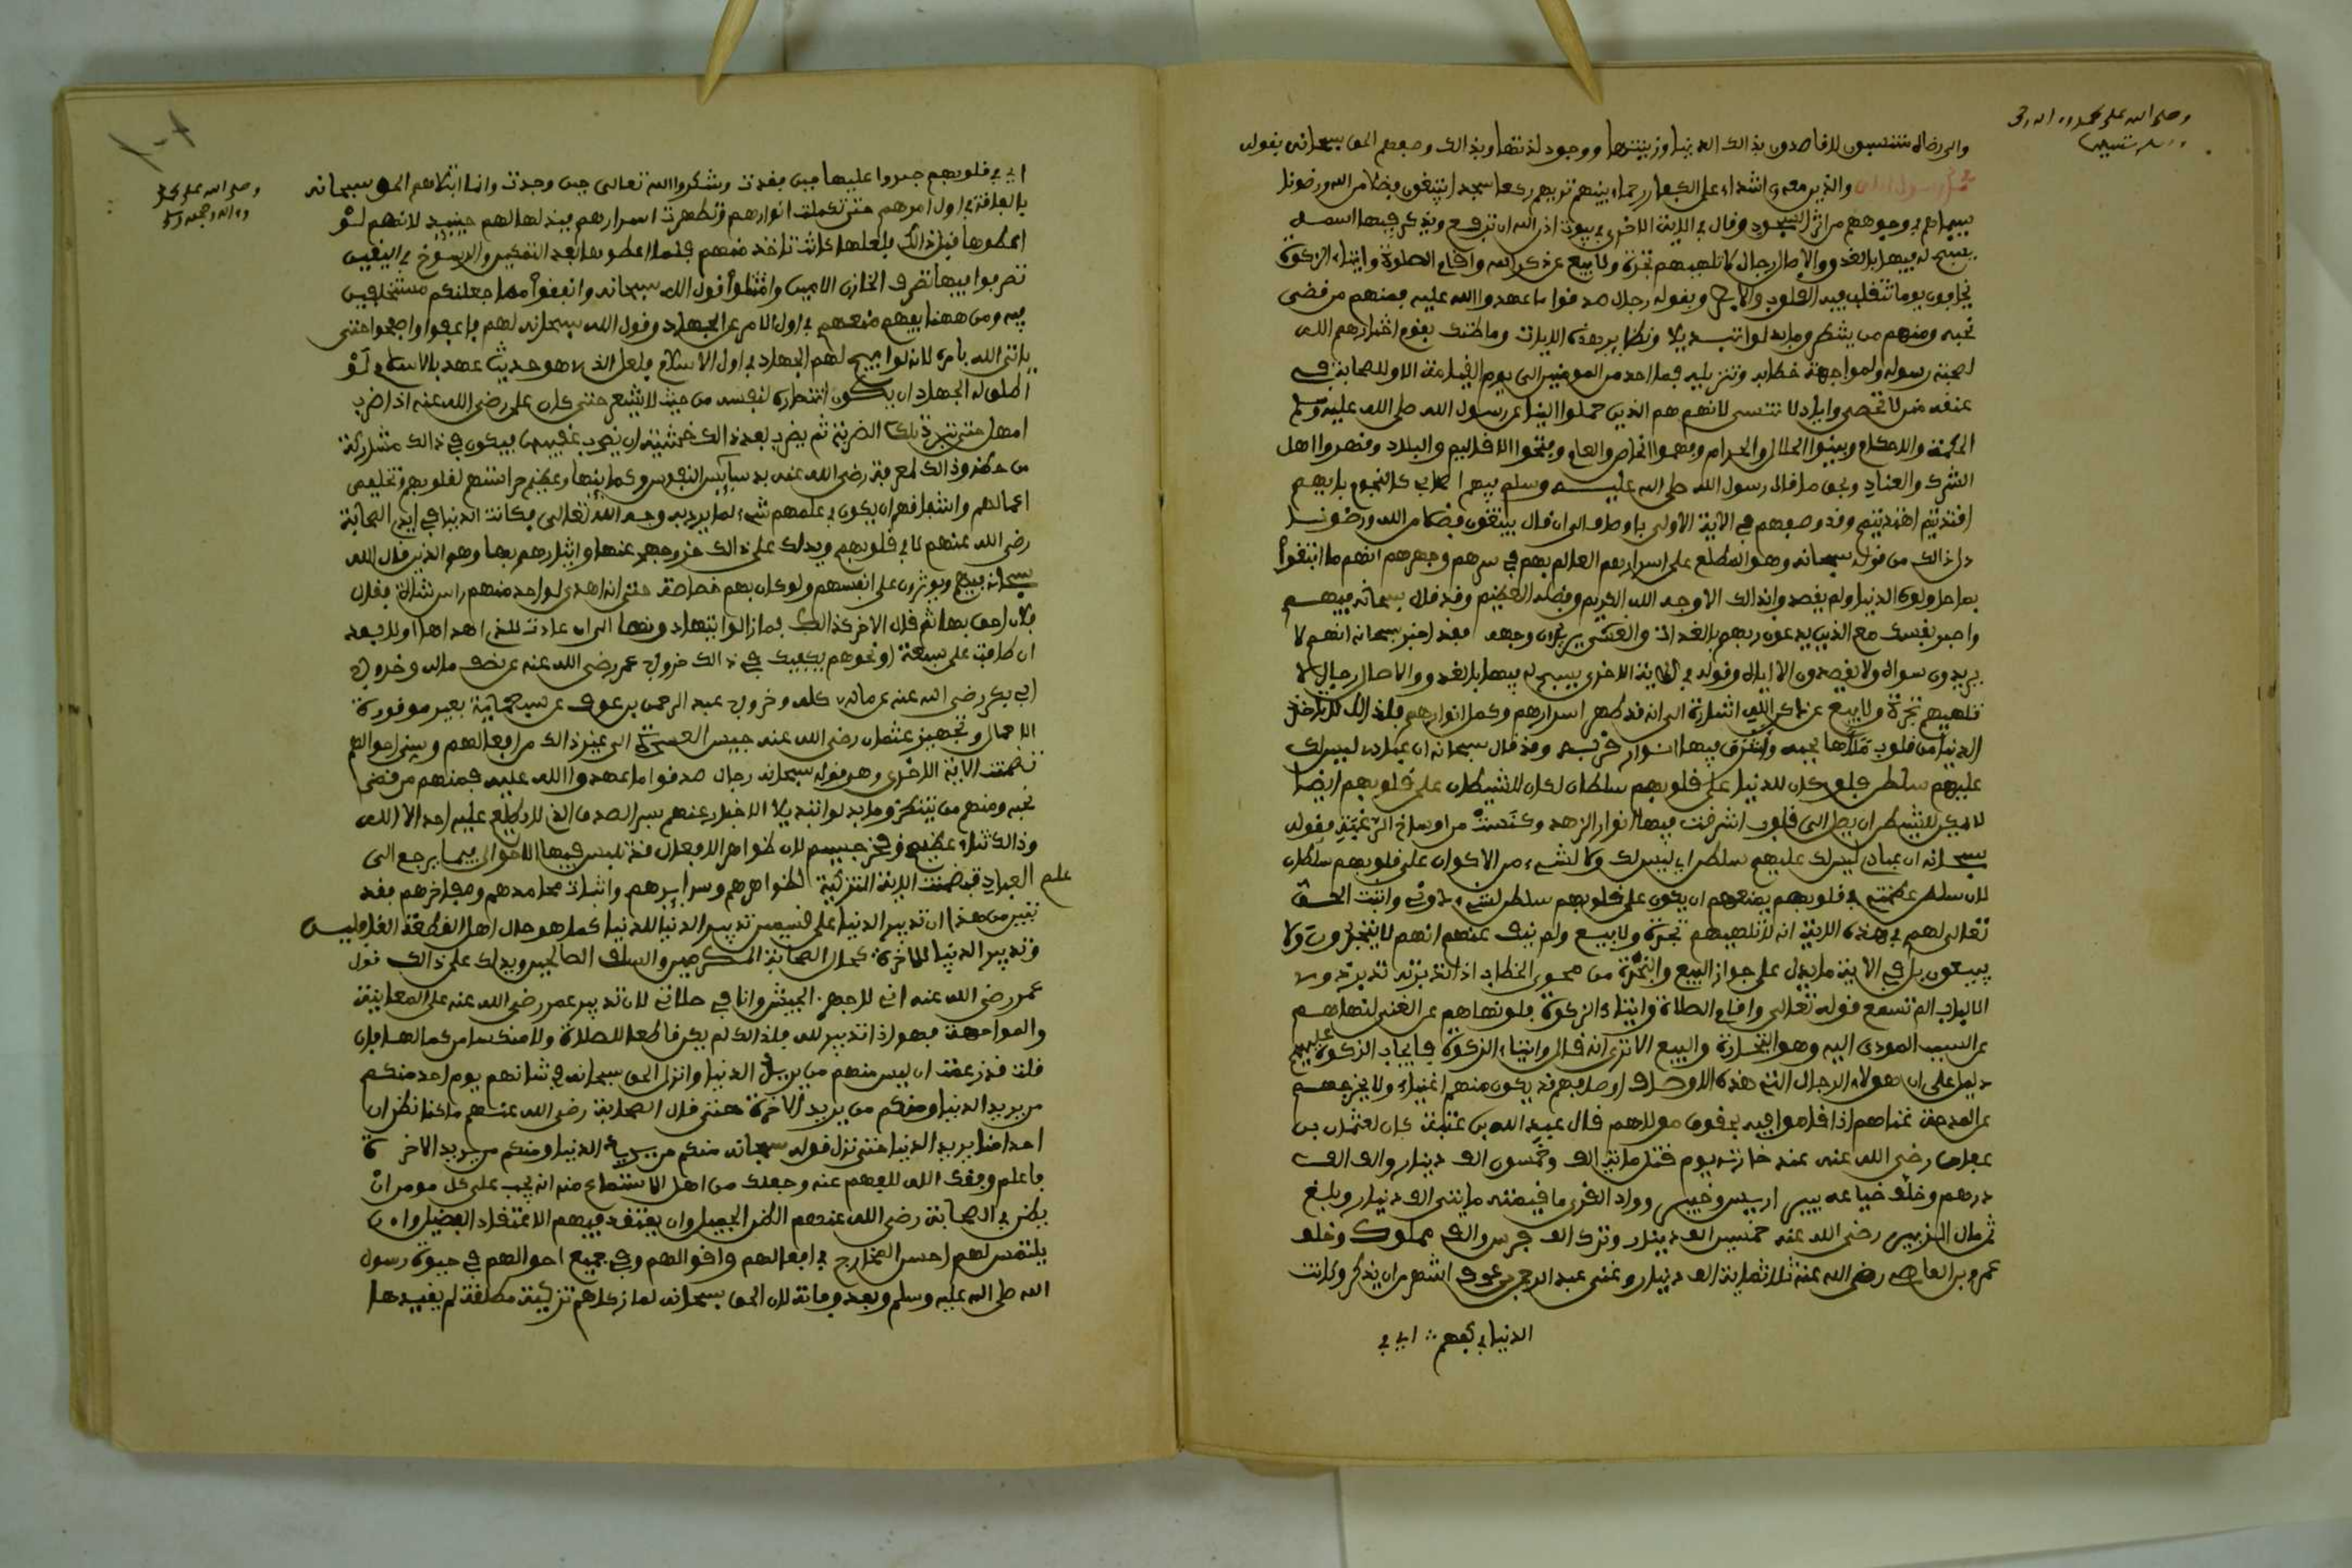 وصلى الله على محمد واله
والى رضاك منتسبون لا قاصدون بذالك الدنيا وزينتها ووجود لذتها وبذالك وصفهم الحق سبحانه بقوله
محمد رسول الله والذين معه اشداء على الكفار رحماء بينهم تريهم ركعا سجدا يبتغون فضلا من الله ورضونا
سيماهم في وجوههم من اثر السجود وقال في الاية الاخرى في بيوت اذن الله ان ترفع ويذكر فيها اسمه
يسبح له فيها بالغدو والاصال رجال لا تلهيهم تجرة ولا بيع عن ذكر الله واقام الصلوة وايتاء الزكوة
يخافون يوما تتقلب فيه القلوب والابصر وبقوله رجال صدقوا ما عهدوا الله عليه فمنهم من قضى
نحبه ومنهم من ينتظر وما بدلوا تبديلا ونظاير هذه الايات وما ظنك بقوم اختارهم الله
لصحبة رسوله ولمواجهة خطابه وتنزيله فما احد من المومنين الى يوم القيامة الا وللصحابة في
عنقه منن لا تحصى واياد لا تنسى لانهم هم الذين حملوا الينا عن رسول الله صلى الله عليه وسلم
الحكمة والاحكام وبينوا الحلال والحرام وفهموا الخاص والعام وفتحوا الاقاليم والبلاد وقهروا اهل
الشرك والعناد وبحق ما قال رسول الله صلى الله عليه وسلم فيهم اصحابي كالنجوم بايهم
اقتديتم اهتديتم وقد وصفهم في الاية الاولى باوصاف الى ان قال يبتغون فضلا من الله ورضونا
دل ذالك من قوله سبحانه وهو المطلع على اسرارهم العالم بهم في سرهم وجهرهم انهم ما ابتغوا
بما حاولوه الدنيا ولم يقصدوا بذالك الا وجه الله الكريم وفضله العظيم وقد قال سبحانه فيهم
واصبر نفسك مع الذين يدعون ربهم بالغداة والعشي يريدون وجهه فقد اخبر سبحانه انهم لا
يريدون سواه ولا يقصدون الا اياه وقوله في الاية الاخرى يسبح له فيها بالغدو والاصال رجال لا
تلهيهم تجرة ولا بيع عن ذكر الله اشارة الى انه قد طهر اسرارهم وكمل انوارهم فلذالك لا تاخذ
الدنيا من قلوب ملاها بحبه واشرق فيها انوار قربه وقد قال سبحانه ان عبادى ليس لك
عليهم سلطن فلو كان للدنيا على قلوبهم سلطان لكان للشيطان على قلوبهم ايضا
لا يمكن للشيطن ان يصل الى قلوب اشرقت فيها انوار الزهد وكنست من اوساخ الرغبة فقوله
سبحانه ان عبادى ليس لك عليهم سلطن اى ليس لك ولا لشيء من الاكوان على قلوبهم سلطان
لان سلطن عظمتى في قلوبهم يمنعهم ان يكون على قلوبهم سلطن لشيء دوني واثبت الحق
تعالى لهم في هذه الاية انه لا تلهيهم تجرة ولا بيع ولم ينف عنهم انهم لا يتجرون ولا
يبيعون بل في الاية ما يدل على جواز البيع والتجرة من فحوى الخطاب اذا تدبرته تدبر ذوى
الالباب الم تسمع قوله تعالى واقام الصلاة وايتاء الزكوة فلو نهاهم عن الغنى لنهاهم
عن السبب المودى اليه وهو التجارة والبيع الا ترى انه قال وايتاء الزكوة فايجاب الزكوة عليهم
دليل على ان هولاء الرجال الذين هذه الاوصاف اوصافهم قد يكون منهم اغنياء ولا يخرجهم
عن المدحة غناهم اذا قاموا فيه بحقوق مولاهم قال عبد الله بن عتبة كان لعثمان بن
عفان رضى الله عنه عند خازنه يوم قتل مائة الف وخمسون الف دينار والف الف
درهم وخلف ضياعه ببير اريس وخيبر ووادى القرى ما قيمته مايتى الف دينار وبلغ
ثمن مال الزبير رضى الله عنه خمسين الف دينار وترك الف فرس والف مملوك وخلف
عمرو بن العاص رضى الله عنه ثلاثماية الف دينار وغنى عبد الرحمن بن عوف اشهر من ان يذكر وكانت
الدنيا في اكفهم لا في
وصلى الله على محمد
واله وصحبه وسلم
لا في قلوبهم صبروا عليها حين فقدت وشكروا الله تعالى حين وجدت وانما ابتلاهم الحق سبحانه
بالفاقة في اول امرهم حتى تكملت انوارهم وتطهرت اسرارهم فبذلها لهم حينيذ لانهم لو
اعطوها قبل ذالك فلعلها كانت تاخذ منهم فلما اعطوها بعد التمكين والرسوخ في اليقين
تصرفوا فيها تصرف الخازن الامين وامتثلوا قول الله سبحانه وانفقوا مما جعلكم مستخلفين
فيه ومن ههنا يفهم منعهم في اول الامر عن الجهاد وقول الله سبحانه لهم فاعفوا واصفحوا حتى
ياتى الله بامره لانه لو ابيح لهم الجهاد في اول الاسلام فلعل الذى هو حديث عهد بالاسلام لو
اطلق له الجهاد ان يكون انتصاره لنفسه من حيث لا يشعر حتى كان على رضى الله عنه اذا ضرب
امهل حتى تبرد تلك الضربة ثم يضرب بعد ذالك خشية ان يضرب عقيبها فيكون في ذالك مشاركة
من حظه وذالك لمعرفته رضى الله عنه بدسايس النفوس وكماينها وعظيم حراستهم لقلوبهم وتخليص
اعمالهم واشفاقهم ان يكون في عملهم شيء لم يرد به وجه الله تعالى فكانت الدنيا في ايدى الصحابة
رضى الله عنهم لا في قلوبهم ويدلك على ذالك خروجهم عنها وايثارهم بها وهم الذين قال الله
سبحانه فيهم ويوثرون على انفسهم ولو كان بهم خصاصة حتى انه اهدى لواحد منهم راس شاة فقال
فلان احق بها ثم قال الاخر كذالك فما زالوا يتهادونها الى ان عادت للذى اهداها اولا بعد
ان طافت على سبعة او نحوهم يكفيك في ذالك خروج عمر رضى الله عنه عن نصف ماله وخروج
ابى بكر رضى الله عنه عن ماله كله وخروج عبد الرحمن بن عوف عن سبعماية بعير موقورة
الاحمال وتجهيز عثمان رضى الله عنه جيش العسرة الى غير ذالك من افعالهم وسنى احوالهم
تضمنت الاية الاخرى وهو قوله سبحانه رجال صدقوا ما عهدوا الله عليه فمنهم من قضى
نحبه ومنهم من ينتظر وما بدلوا تبديلا الاخبار عنهم بسر الصدق الذى لا يطلع عليه احد الا الله
وذالك ثناء عظيم وفخر جسيم لان ظواهر الافعال قد تلبس فيها الاحوال فيما يرجع الى
علم العباد فتضمنت الاية التزكية لظواهرهم وسرايرهم واثبات محامدهم ومفاخرهم فقد
تبين من هذا ان تدبير الدنيا على قسمين تدبير الدنيا للدنيا كما هو حال اهل القطعة الغافلين
وتدبير الدنيا للاخرة كحال الصحابة المكرمين والسلف الصالحين ويدلك على ذالك قول
عمر رضى الله عنه انى لاجهز الجيش وانا في صلاتى لان تدبير عمر رضى الله عنه على المعاينة
والمواجهة فهو اذا تدبير لله فلذالك لم يكن قاطعا للصلاة ولا منكسا من كمالها فان
قلت قد زعمت ان ليس منهم من يريد الدنيا وانزل الحق سبحانه في شانهم يوم احد منكم
من يريد الدنيا ومنكم من يريد الاخرة حتى قال بعض الصحابة رضى الله عنهم ما كنا نظن ان
احدا منا يريد الدنيا حتى نزل قوله سبحانه منكم من يريد الدنيا ومنكم من يريد الاخرة
فاعلم وفقك الله للفهم عنه وجعلك من اهل الاستماع منه انه يجب على كل مومن ان
يظن في الصحابة رضى الله عنهم الظن الجميل وان يعتقد فيهم الاعتقاد الفضيل وان
يلتمس لهم احسن المخارج في افعالهم واقوالهم وفي جميع احوالهم في حيوة رسول
الله صلى الله عليه وسلم وبعد وفاته لان الحق سبحانه لما زكاهم تزكية مطلقة لم يقيدها